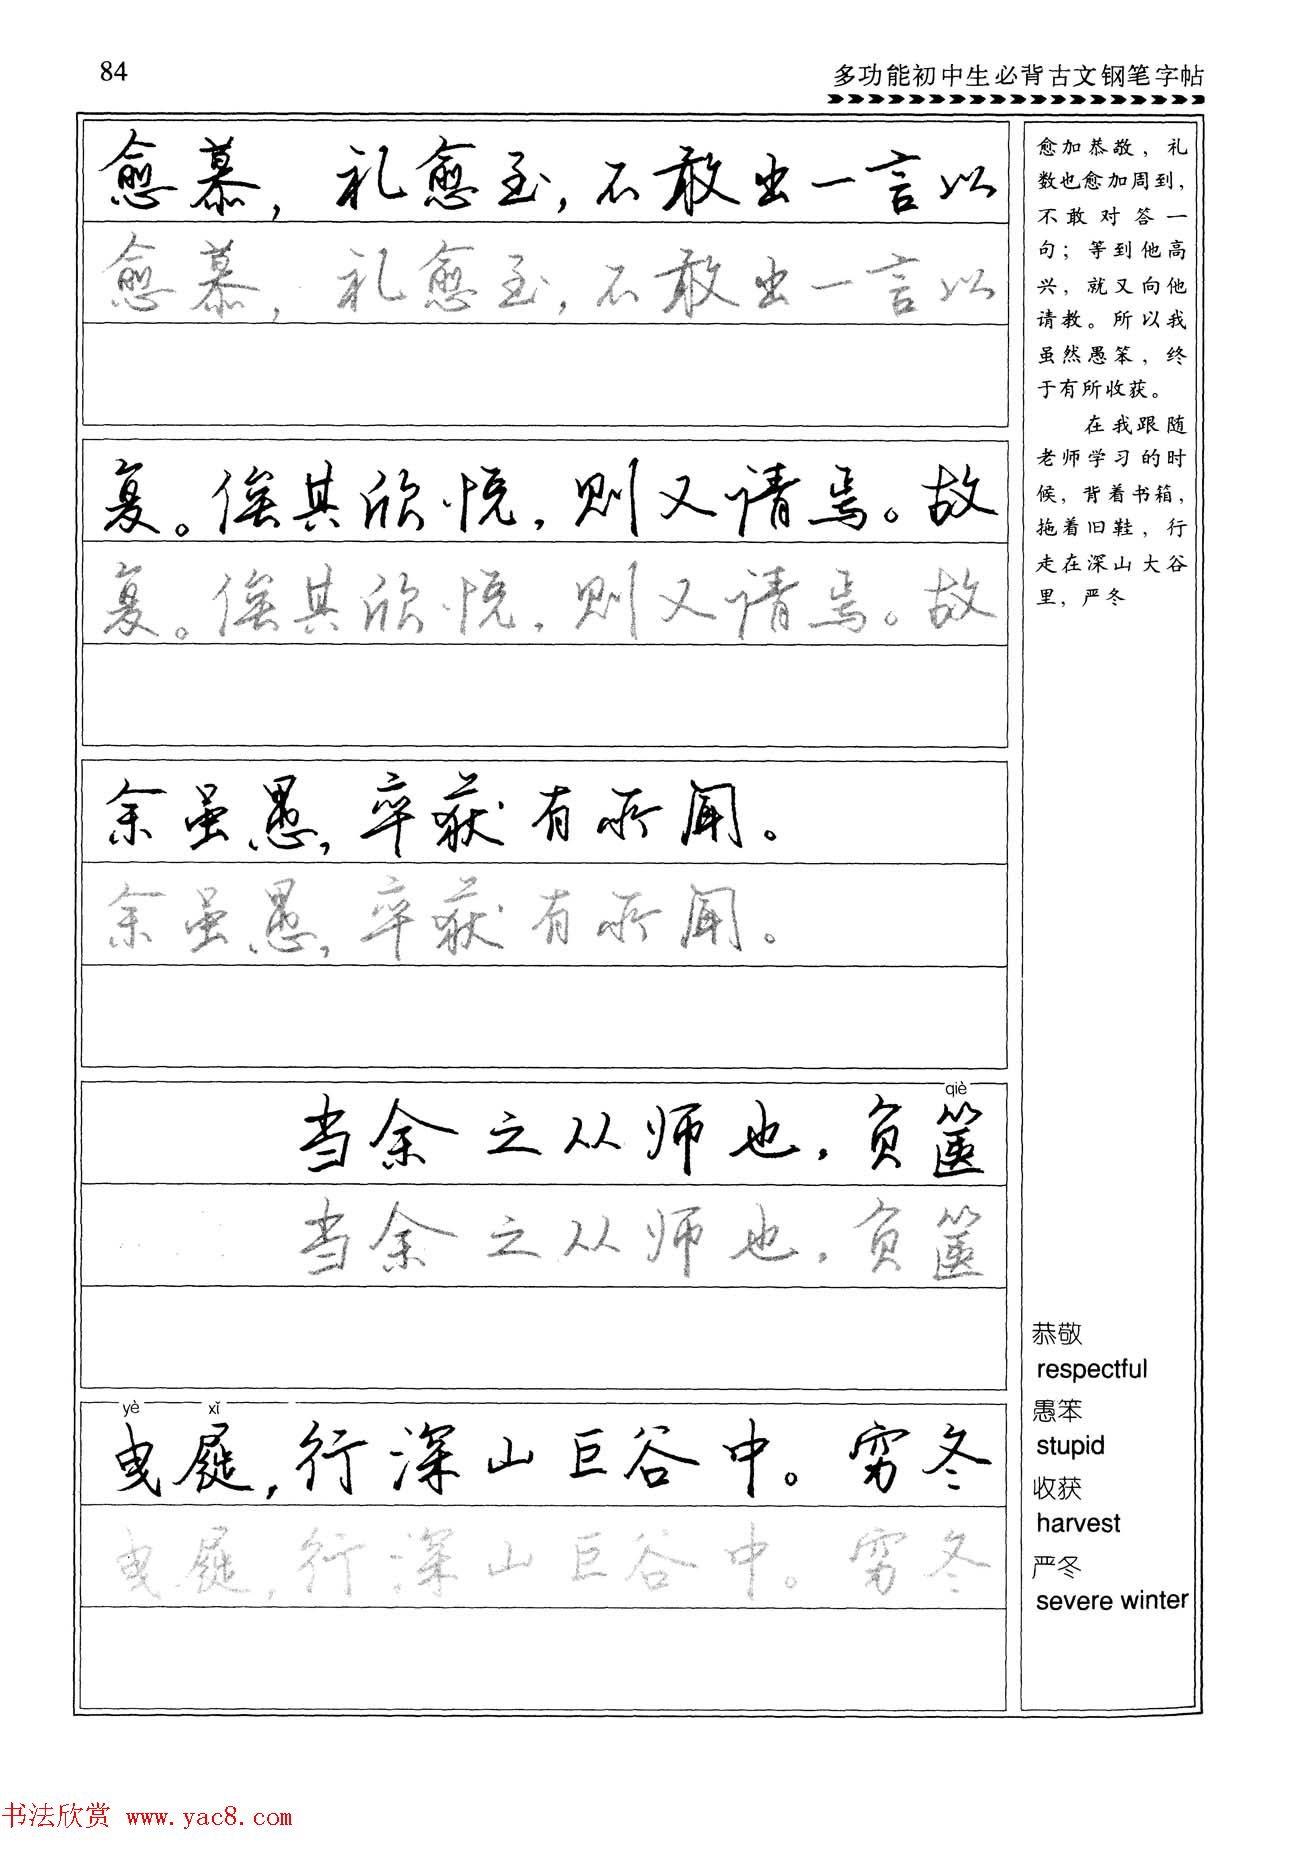 84
多功能初中生必背古文钢笔字帖
愈慕，礼愈至，不敢出一言以
愈慕，礼愈至，不敢出一言以
复。俟其欣悦，则又请焉。故
复。俟其欣悦，则又请焉。故
余虽愚，卒获有所闻。
余虽愚，卒获有所闻。
qiè
当余之从师也，负箧
当余之从师也，负箧
yè xǐ
曳屣，行深山巨谷中。穷冬
曳屣，行深山巨谷中。穷冬
愈加恭敬，礼
数也愈加周到，
不敢对答一
句；等到他高
兴，就又向他
请教。所以我
虽然愚笨，终
于有所收获。
在我跟随
老师学习的时
候，背着书箱，
拖着旧鞋，行
走在深山大谷
里，严冬
恭敬
respectful
愚笨
stupid
收获
harvest
严冬
severe winter
书法欣赏 www.yac8.com